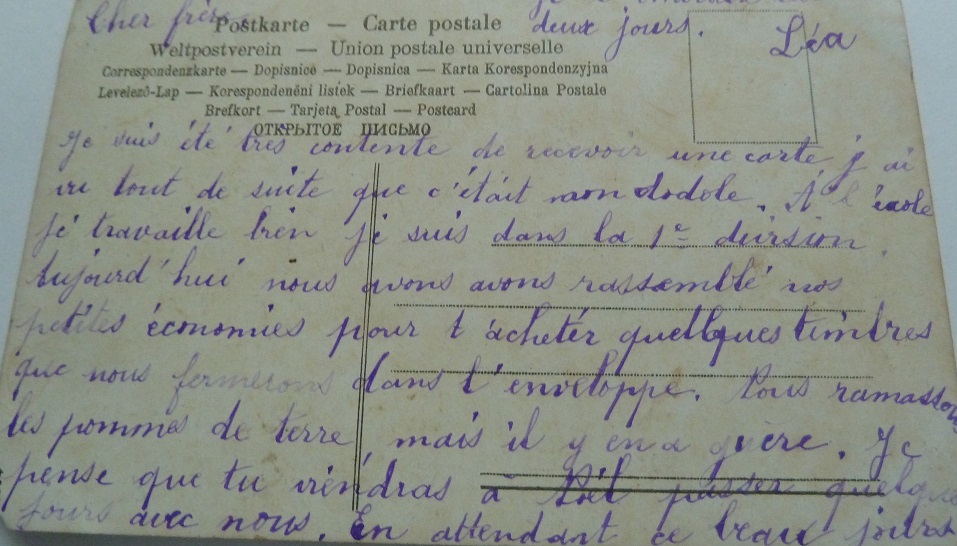 Cher frère
deux jours.
Léa
Postkarte — Carte postale
Weltpostverein — Union postale universelle
Correspondenzkarte — Dopisnice — Dopisnica — Karta Korespondenzyjna
Levelező-Lap — Korespondenční lístek — Briefkaart — Cartolina Postale
Brefkort — Tarjeta Postal — Postcard
ОТКРЫТОЕ ПИСЬМО
Je suis été très contente de recevoir une carte j'ai
vu tout de suite que c'était mon dodole. A l'école
je travaille bien je suis dans la 1re division.
Aujourd'hui nous avons avons rassemblé nos
petites économies pour t'acheter quellques timbres
que nous fermerons dans l'enveloppe. Nous ramassons
les pommes de terre, mais il y en a guère. Je
pense que tu viendras à passer quelque
jours avec nous. En attendant ce beau jour